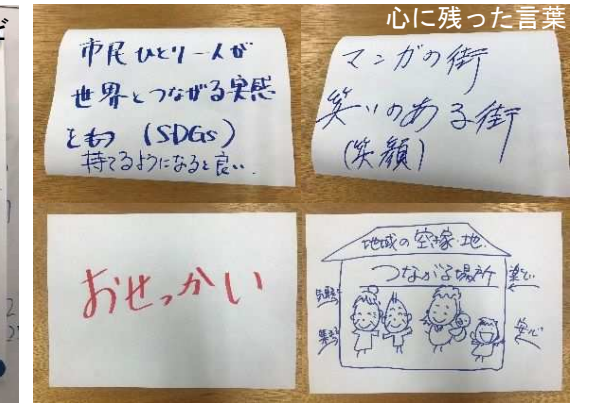 心に残った言葉
市民ひとり一人が
世界とつながる実感
をもつ (SDGs)
持てるようになると良い.
マンガの街
笑いのある街
(笑顔)
おせっかい
地域の空き家・地
つながる場所
気軽に
集まる
楽しい
安心